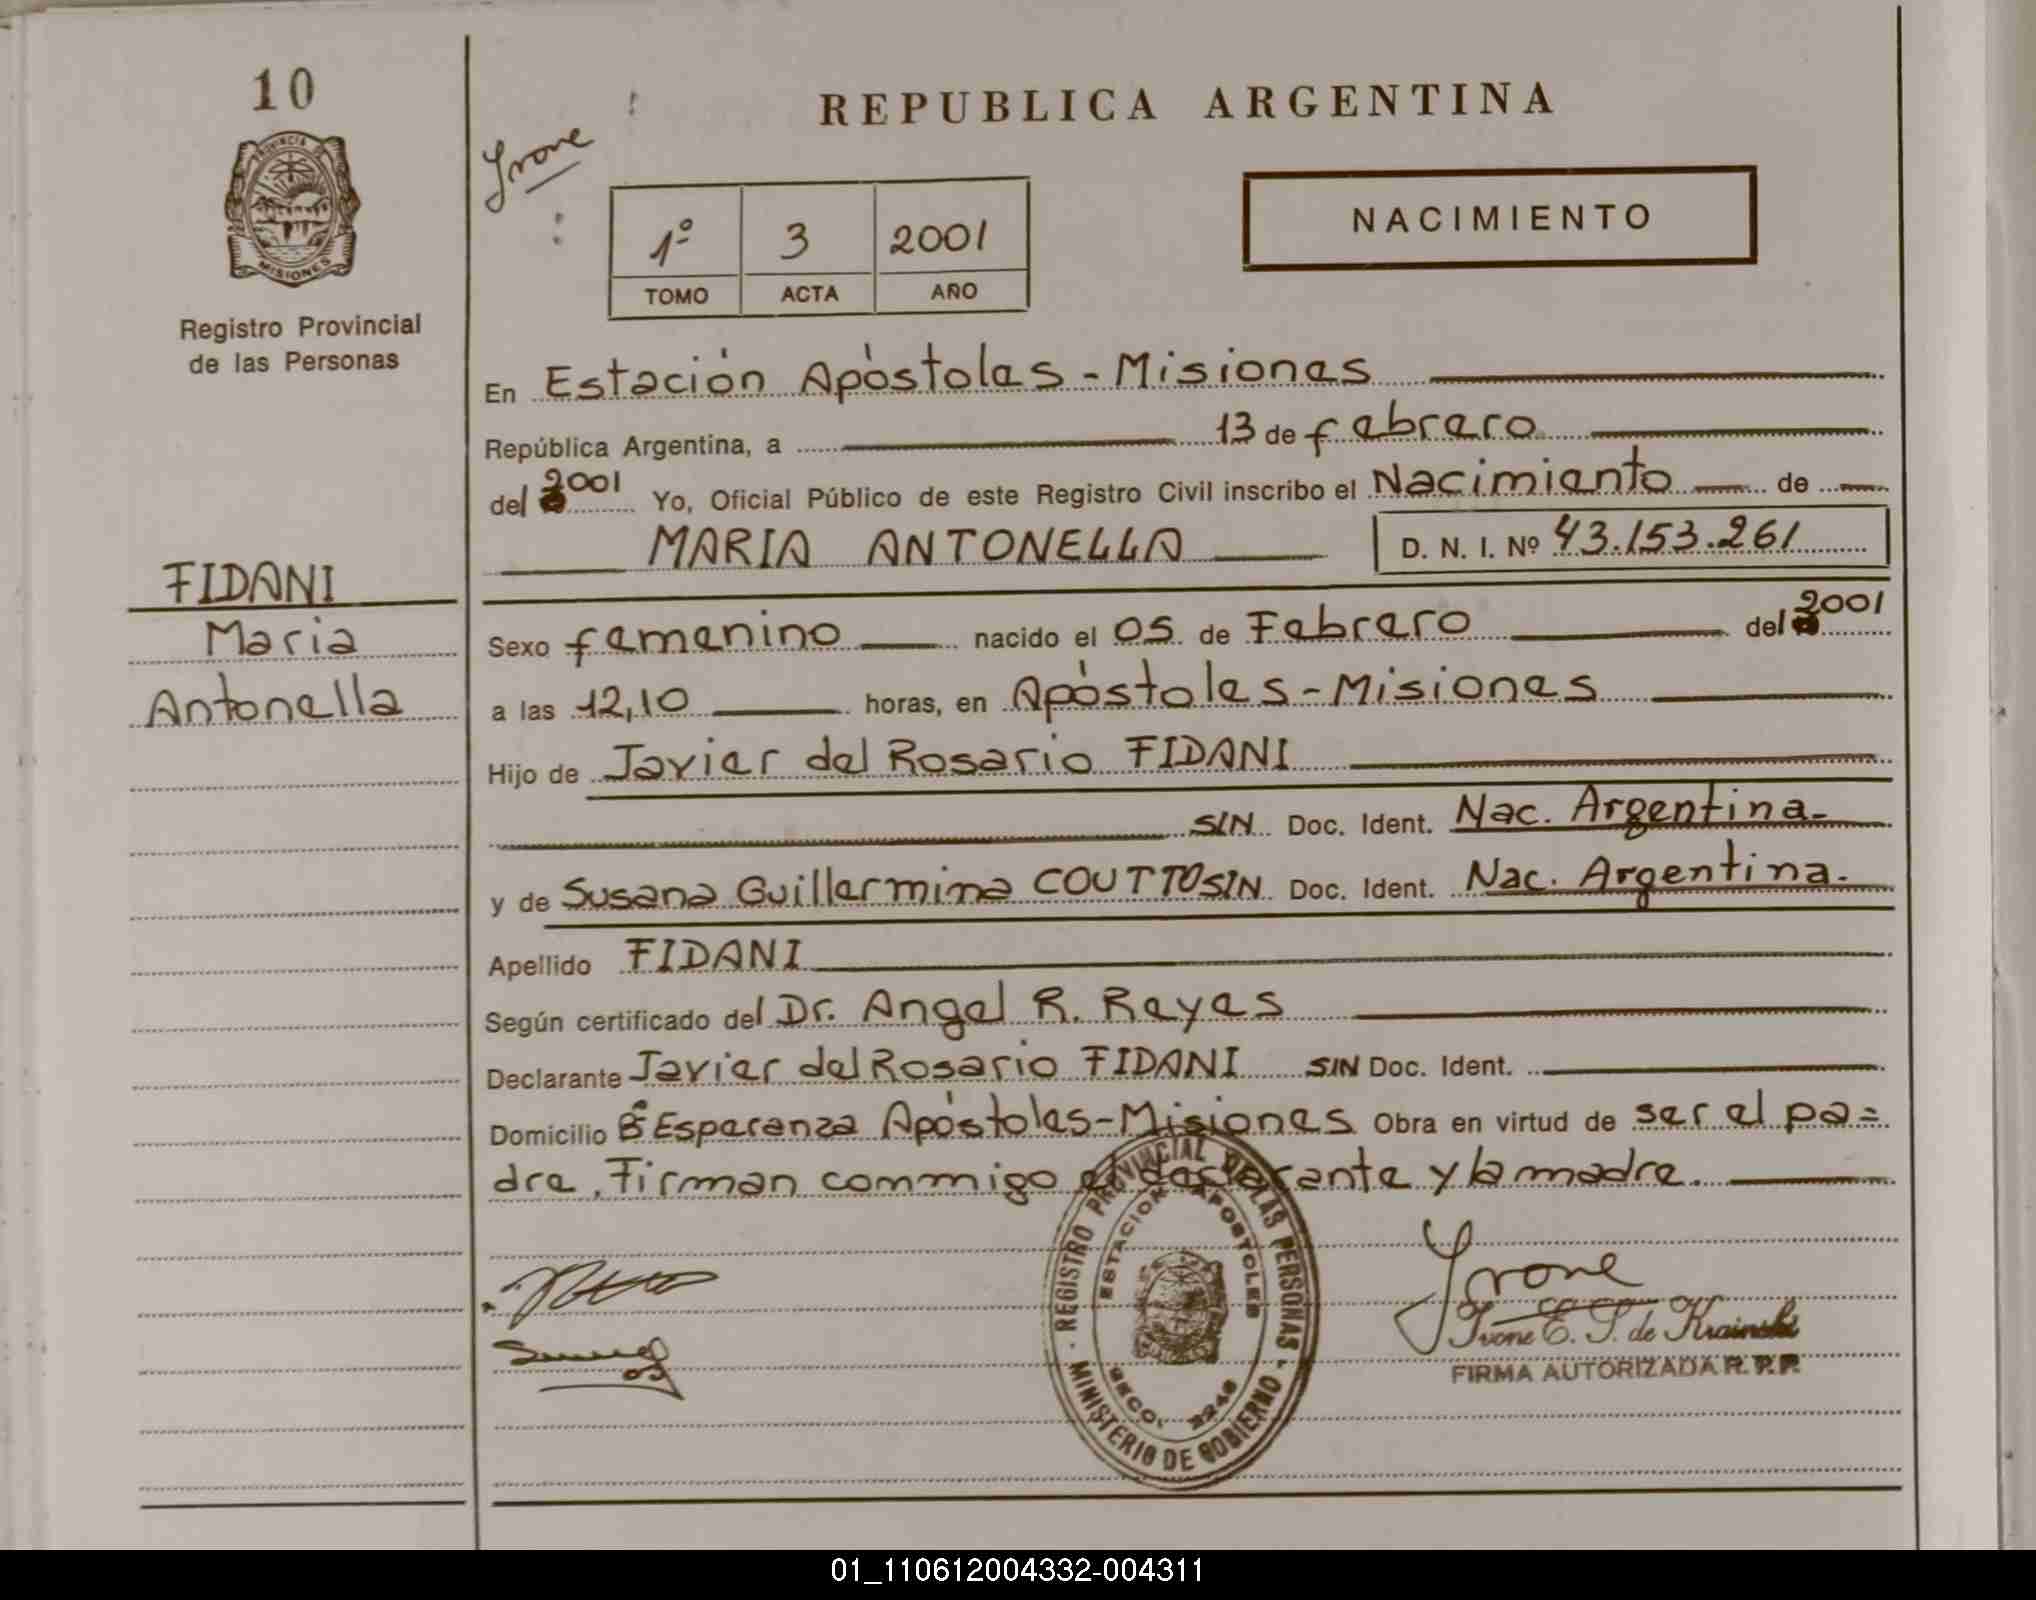 10
PROVINCIA DE
MISIONES
Registro Provincial
de las Personas
FIDANI
Maria
Antonella
REPUBLICA ARGENTINA
Yvone
1º 3 2001
TOMO ACTA AÑO
NACIMIENTO
En Estación Apóstoles - Misiones
República Argentina, a 13 de febrero
del 2001 Yo, Oficial Público de este Registro Civil inscribo el Nacimiento de
MARIA ANTONELLA D. N. I. Nº 43.153.261
Sexo femenino nacido el 05 de Febrero del 2001
a las 12,10 horas, en Apóstoles - Misiones
Hijo de Javier del Rosario FIDANI
SIN Doc. Ident. Nac. Argentina.
y de Susana Guillermina COUTTO SIN Doc. Ident. Nac. Argentina.
Apellido FIDANI
Según certificado del Dr. Angel R. Reyes
Declarante Javier del Rosario FIDANI SIN Doc. Ident.
Domicilio Bº Esperanza Apóstoles-Misiones Obra en virtud de ser el pa=
dre. Firman conmigo el declarante y la madre.
REGISTRO PROVINCIAL DE LAS PERSONAS
ESTACION APOSTOLES
SECC. 2246
MINISTERIO DE GOBIERNO
Yvone
Yvone E. S. de Krainski
FIRMA AUTORIZADA R. P. P.
01_110612004332-004311